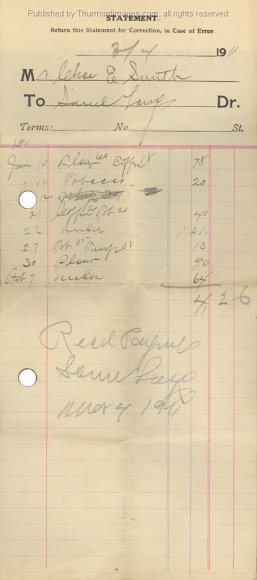 Published by ThurmontImages.com, all rights reserved
STATEMENT.
Return this Statement for Correction, in Case of Error
3/4 1911
Mr Chas E Smith
To Saml Long Dr.
Terms: No. St.
1911
Jan 10 Coffee 78
10 Tobacco 20
12
21 Coffee 40
22 1 21
27 13
30 Flour 90
Feb 7 64
4 26
Recd Payment
Saml Long
Mar 4 1911